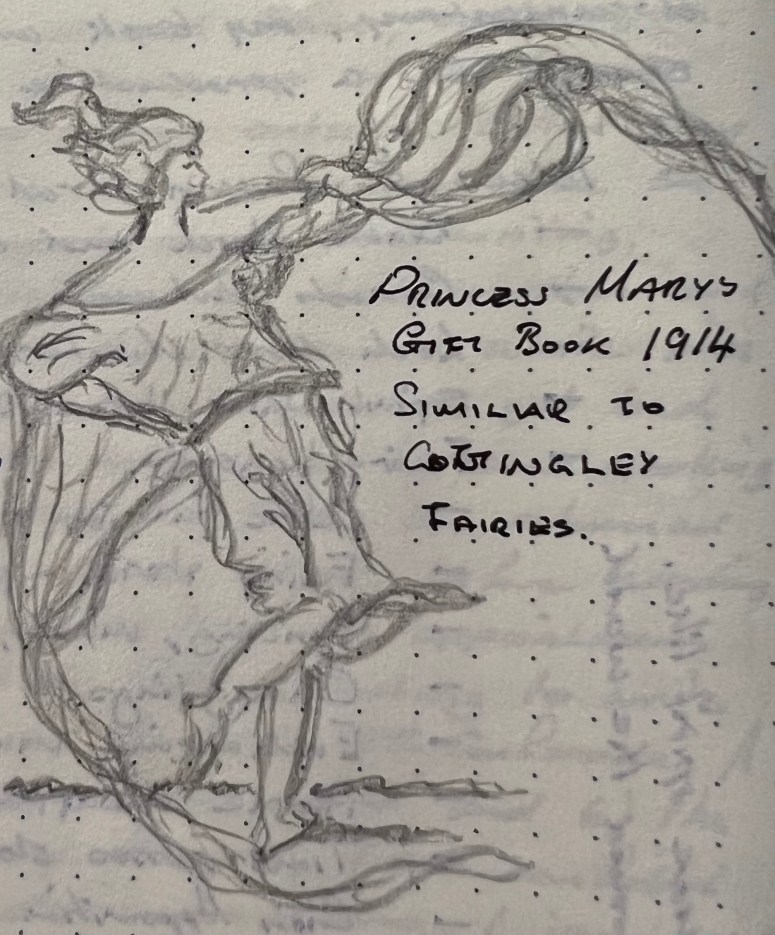 PRINCESS MARYS
GIFT BOOK 1914
SIMILAR TO
COTTINGLEY
FAIRIES.